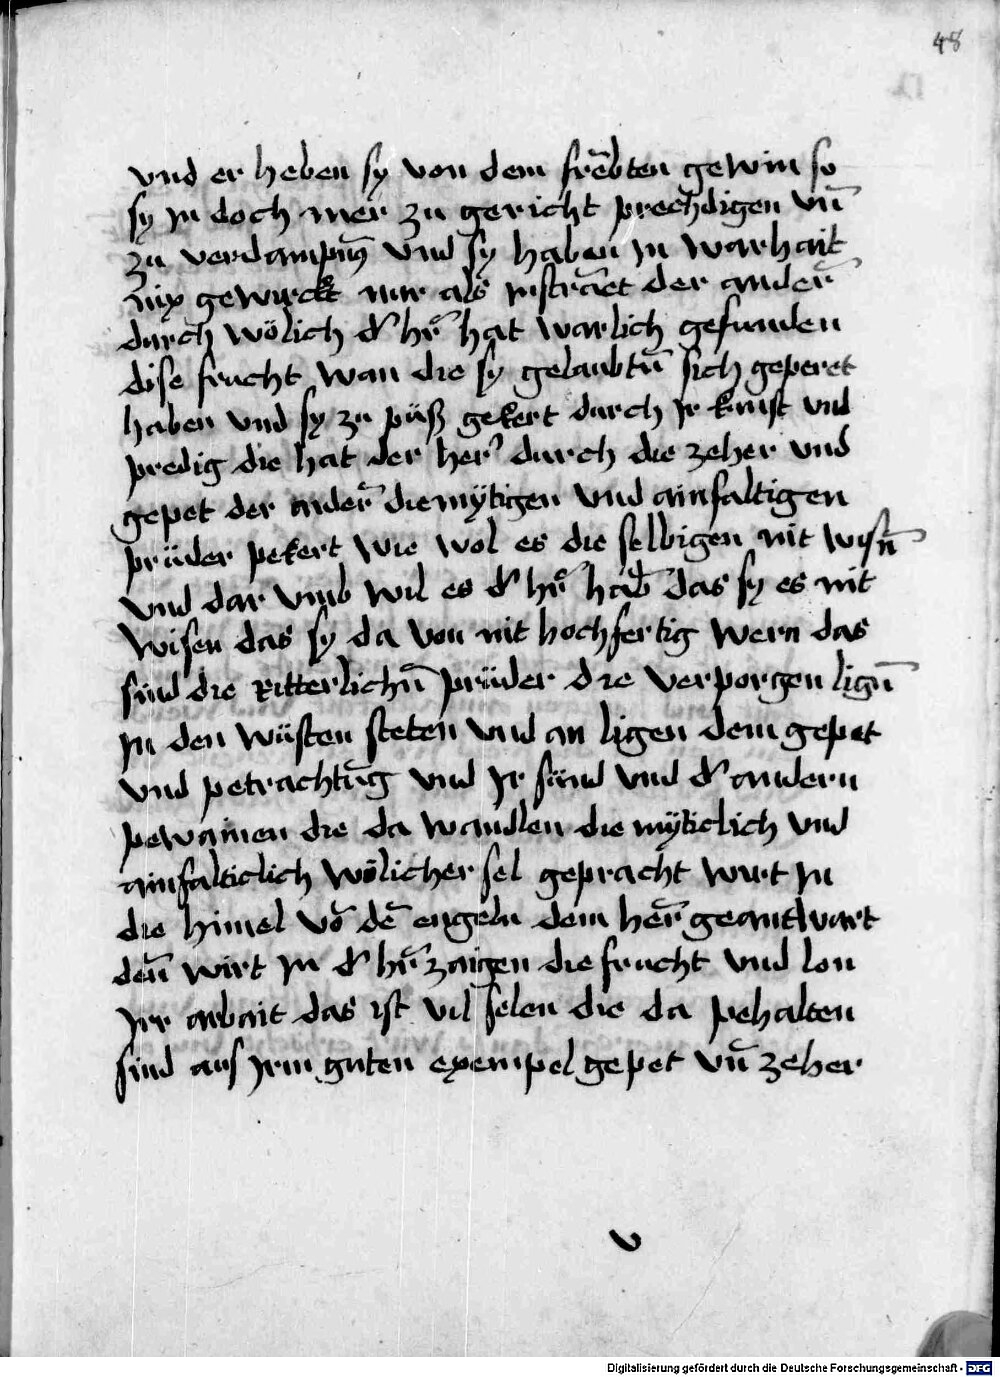 48
vnd er heben sy von dem frēbten gewin so
sy jn doch mer zu gericht prechdigen vn̄
zu verdampnꝰ vnd sy haben jn warhait
nix gewurckt nur als der ander̄
durch wölich d' hr̄ hat warlich gefunden
dise frucht wan die sy gelaubtn̄ sich geperet
haben vnd sy zu püß gekert durch jr kunst vnd
predig die hat der her' durch die zeher vnd
gepet der ander̄ diemÿtigen vnd ainfaltigen
prüder pekert wie wol es die selbigen nit wisn̄
vnd dar vmb wil es d' hr̄ hab̄ das sy es nit
wisen das sy da von nit hochfertig wern das
sind die Ritterlichn̄ prüder die verporgen lign̄
jn den wüsten steten vnd an ligen dem gepet
vnd petrachtūg vnd jr sünd vnd d' andern
pewainen die da wandlen diemÿticlich vnd
ainfalticlich wölicher sel gepracht wirt jn
die himel vō dē engeln dem her̄ geantwart
den̄ wirt jn d' hr̄ zaigen die frucht vnd lon
jrr arbait das ist vil selen die da pehalten
sind aus jrm guten exempel gepet vn̄ zeher
v
Digitalisierung gefördert durch die Deutsche Forschungsgemeinschaft - DFG